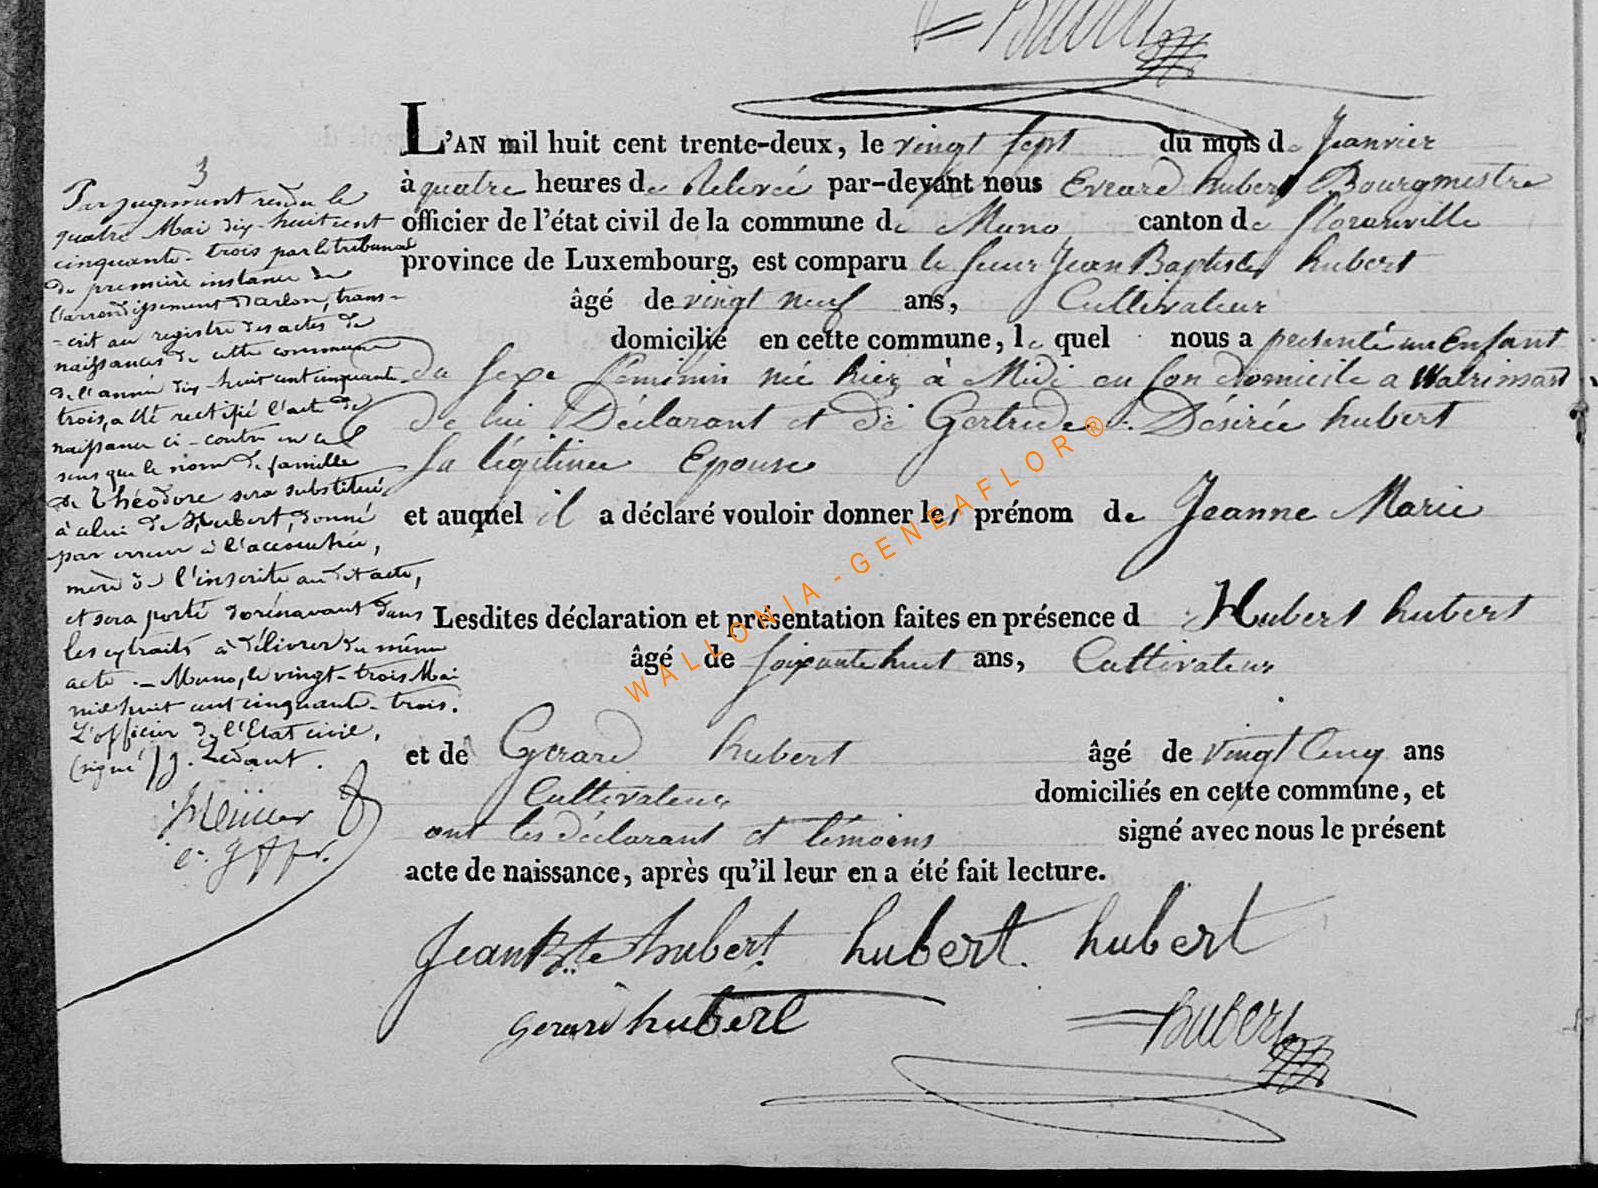 L'AN mil huit cent trente-deux, le vingt sept du mois de Janvier
à quatre heures de Relevée par-devant nous Evrard hubert Bourgmestre
officier de l'état civil de la commune de Muno canton de florenville
province de Luxembourg, est comparu le sieur Jean Baptiste hubert
âgé de vingt neuf ans, Cultivateur
domicilié en cette commune, le quel nous a présenté un Enfant
du sexe féminin né hier à Midi en son domicile a Watrinsart
de lui Déclarant et de Gertrude Désirée hubert
sa légitime Epouse
et auquel il a déclaré vouloir donner les prénom de Jeanne Marie
Lesdites déclaration et présentation faites en présence d Hubert hubert
âgé de soixante huit ans, Cultivateur
et de Gerard hubert âgé de vingt Cinq ans
Cultivateur domiciliés en cette commune, et
ont les déclarant et témoins signé avec nous le présent
acte de naissance, après qu'il leur en a été fait lecture.
Jean Bte hubert hubert hubert
gerard hubert
3
Par jugement rendu le
quatre Mai dix-huit cent
cinquante-trois par le tribunal
de première instance de
l'arrondissement d'arlon, trans-
-crit au registre des actes de
naissances de cette commune
de l'année dix-huit cent cinquante
trois, a été rectifié l'acte de
naissance ci-contre en ce
sens que le nom de famille
de Théodore sera substitué
à celui de Hubert, donné
par erreur à l'accouchée,
mère de l'inscrite au dit acte,
et sera porté dorénavant dans
les extraits à délivrer du même
acte. — Muno, le vingt-trois Mai
mil huit cent cinquante-trois.
L'officier de l'Etat civil,
(signé) J. Ledant.
WALLONIA-GENEAFLOR®